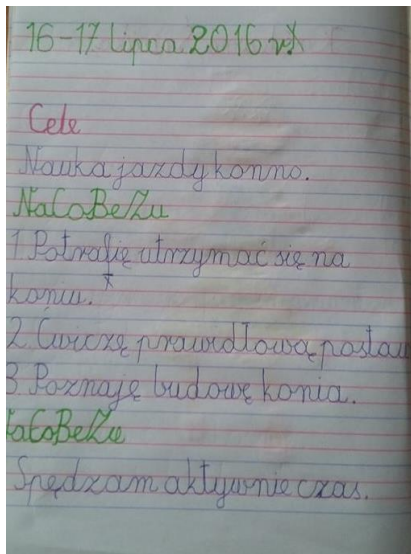 16-17 lipca 2016 r.
Cele
Nauka jazdy konno.
NaCoBeZu
1 Potrafię utrzymać się na
koniu.
2. Ćwiczę prawidłową postaw
3 Poznaję budowę konia.
NaCoBeZu
Spędzam aktywnie czas.